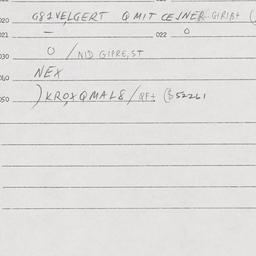 020 G81VELGERT Q MIT CEJNER GIRIB+ (
021 — 022 0
030 0 / NID GIPRE,ST
040 NEX
050 )KROXQMAL8/QF+ (B52261